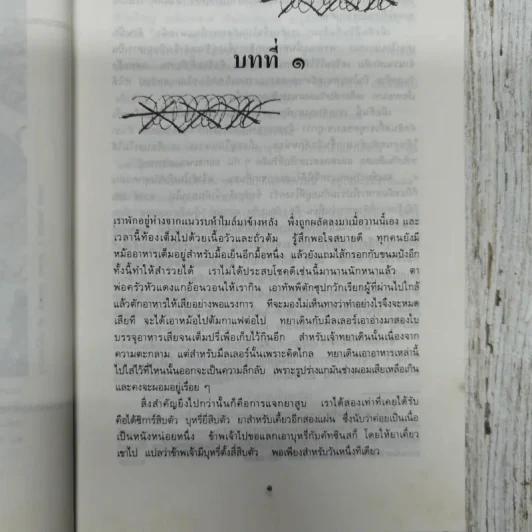 บทที่ ๑
เราพักอยู่ห่างจากแนวรบห้าไมล์มาข้างหลัง พึ่งถูกผลัดลงมาเมื่อวานนี้เอง และ
เวลานี้ท้องเต็มไปด้วยเนื้อวัวและถั่วต้ม รู้สึกพอใจสบายดี ทุกคนยังมี
หม้ออาหารเต็มอยู่สำหรับมื้อเย็นอีกมื้อหนึ่ง แล้วยังแถมไส้กรอกกับขนมปังอีก
ทั้งนี้ทำให้สำรวยได้ เราไม่ได้ประสบโชคดีเช่นนี้มานานนักหนาแล้ว ตา
พ่อครัวหัวแดงแกอ้อนวอนให้เรากิน เอาทัพพีตักซุปกวักเรียกผู้ที่ผ่านไปใกล้
แล้วตักอาหารให้เสียอย่างพอแรงการ ทีจะมองไม่เห็นทางว่าทำอย่างไรจึงจะหมด
เสียที จะได้เอาหม้อไปต้มกาแฟต่อไป ทยาเดินกับมึลเลอร์เอาอ่างมาสองใบ
บรรจุอาหารเสียจนเต็มปรี่เพื่อเก็บไว้กินอีก สำหรับเจ้าทยาเดินนั้นเนื่องจาก
ความตะกลาม แต่สำหรับมึลเลอร์นั้นเพราะคิดไกล ทยาเดินเอาอาหารเหล่านี้
ไปใส่ไว้ที่ไหนนั้นออกจะเป็นความลึกลับ เพราะรูปร่างแกมันช่างผอมเสียเหลือเกิน
และคงจะผอมอยู่เรื่อย ๆ
สิ่งสำคัญยิ่งไปกว่านั้นก็คือการแจกยาสูบ เราได้สองเท่าที่เคยได้รับ
คือได้ซิการ์สิบตัว บุหรี่ยี่สิบตัว ยาสำหรับเคี้ยวอีกสองแผ่น ซึ่งนับว่าค่อยเป็นเนื้อ
เป็นหนังหน่อยหนึ่ง ข้าพเจ้าไปขอแลกเอาบุหรี่กับคัทซินสกี้ โดยให้ยาเคี้ยว
เขาไป แปลว่าข้าพเจ้ามีบุหรี่ตั้งสี่สิบตัว พอเพียงสำหรับวันหนึ่งทีเดียว